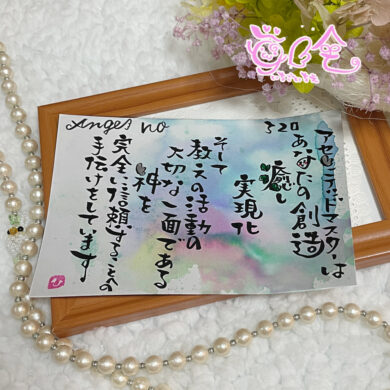 Angel no
320
アセンデッドマスターは
あなたの創造
癒し
実現化
そして
教えの活動の
大切な一面である
神を
完全に信頼することへの
手伝いをしています